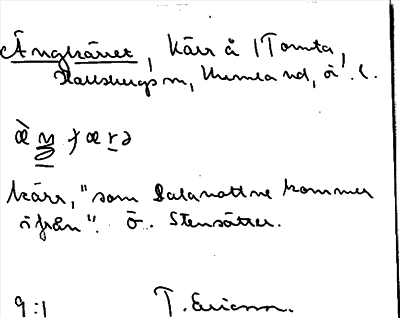 Ängkärret, kärr å 1 Tomta,
Hallsbergs sn, Kumla hd, ö. l.
kärr, "som Dalanattne kommer
ifrån". Ö. Stensätter.
9:1 T. Ericsson.